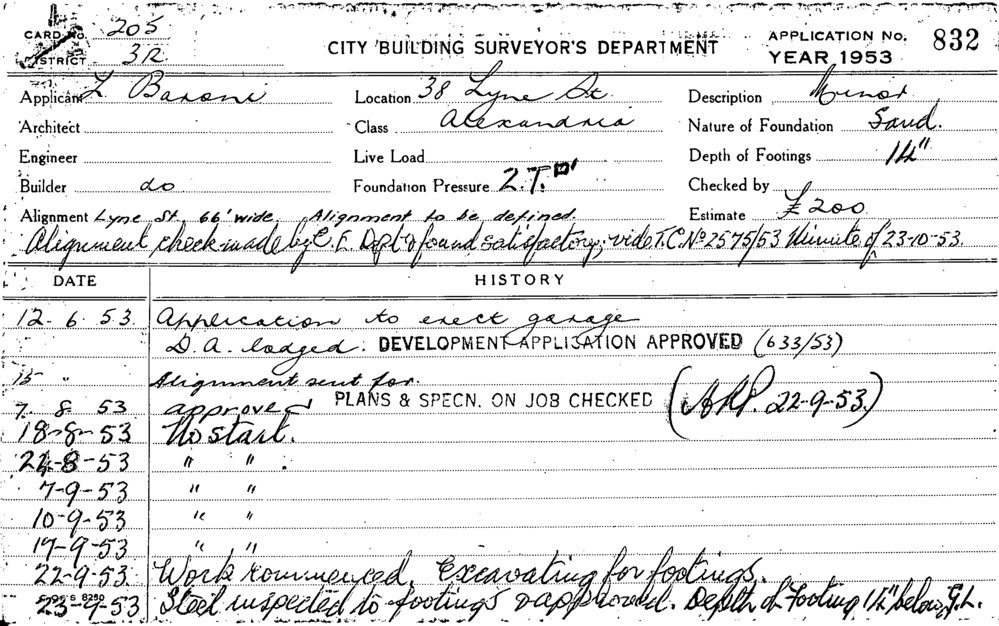 CARD No. 205
DISTRICT 3R
CITY BUILDING SURVEYOR'S DEPARTMENT
APPLICATION No. 832
YEAR 1953
Applicant L Baroni
Location 38 Lyne St
Description Minor
Architect
Class Alexandria
Nature of Foundation Sand.
Engineer
Live Load
Depth of Footings 14"
Builder do
Foundation Pressure 2.T.□'
Checked by
Alignment Lyne St, 66' wide. Alignment to be defined.
Estimate £200
Alignment check made by C.E. Dept & found satisfactory, vide T.C. No 2575/53 Minute of 23-10-53.
DATE HISTORY
12. 6. 53. Application to erect garage
D.A. lodged. DEVELOPMENT APPLICATION APPROVED (633/53)
15 " Alignment sent for.
7. 8 53 approved PLANS & SPECN. ON JOB CHECKED (22-9-53.)
18-8-53 No start.
24-8-53 " " .
7-9-53 " "
10-9-53 " "
19-9-53 " "
22-9-53. Work commenced. Excavating for footings.
23-9-53 Steel inspected to footings & approved. Depth of Footing 14" below G.L.